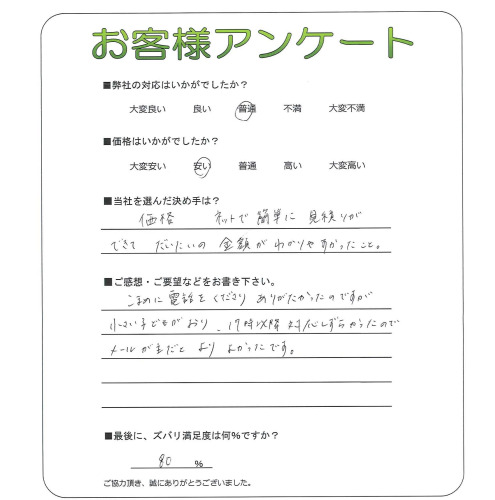 お客様アンケート
■弊社の対応はいかがでしたか？
大変良い　良い　普通　不満　大変不満
■価格はいかがでしたか？
大変安い　安い　普通　高い　大変高い
■当社を選んだ決め手は？
価格　ネットで簡単に見積りが
できて だいたいの金額がわかりやすかったこと。
■ご感想・ご要望などをお書き下さい。
こまめに電話をくださり ありがたかったのですが
小さい子どもがおり、17時以降対応しずらかったので
メールが主だと より よかったです。
■最後に、ズバリ満足度は何％ですか？
80 ％
ご協力頂き、誠にありがとうございました。